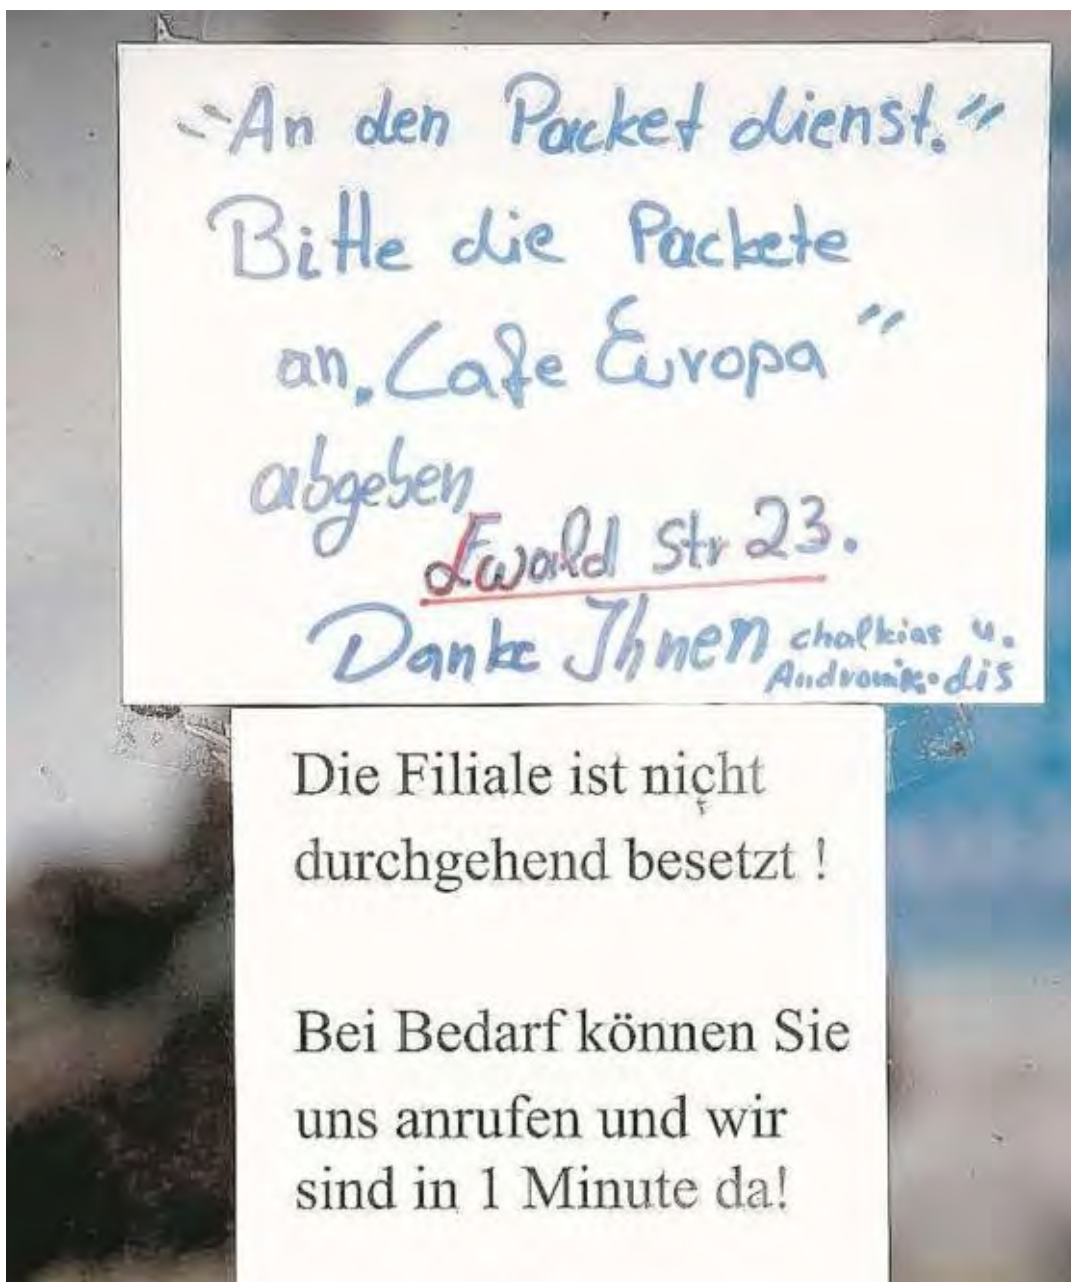 "An den Packet dienst."
Bitte die Packete
an „Cafe Europa"
abgeben
Ewald Str 23.
Danke Ihnen chalkias u.
Die Filiale ist nicht
durchgehend besetzt !
Bei Bedarf können Sie
uns anrufen und wir
sind in 1 Minute da!